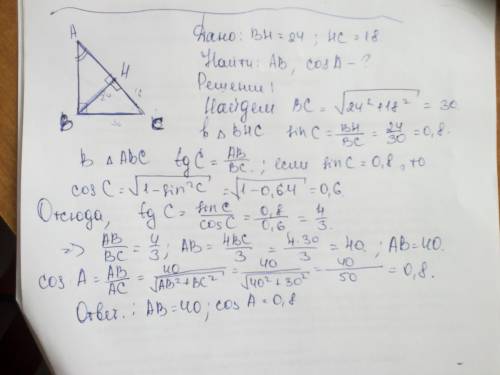 Дано: BH = 24 ; HC = 18
Найти: AB, cosA - ?
Решение:
Найдем BC = √24² + 18² = 30.
В △ BHC sinC = BH/BC = 24/30 = 0,8.
В △ ABC tgC = AB/BC ; если sinC = 0,8, то
cosC = √1 - sin²C = √1 - 0,64 = 0,6.
Отсюда, tgC = sinC/cosC = 0,8/0,6 = 4/3.
=> AB/BC = 4/3 ; AB = 4BC/3 = 4·30/3 = 40. ; AB = 40.
cosA = AB/AC = 40/√AB² + BC² = 40/√40² + 30² = 40/50 = 0,8.
Ответ.: AB = 40 ; cosA = 0,8
A
H
24
18
B
C